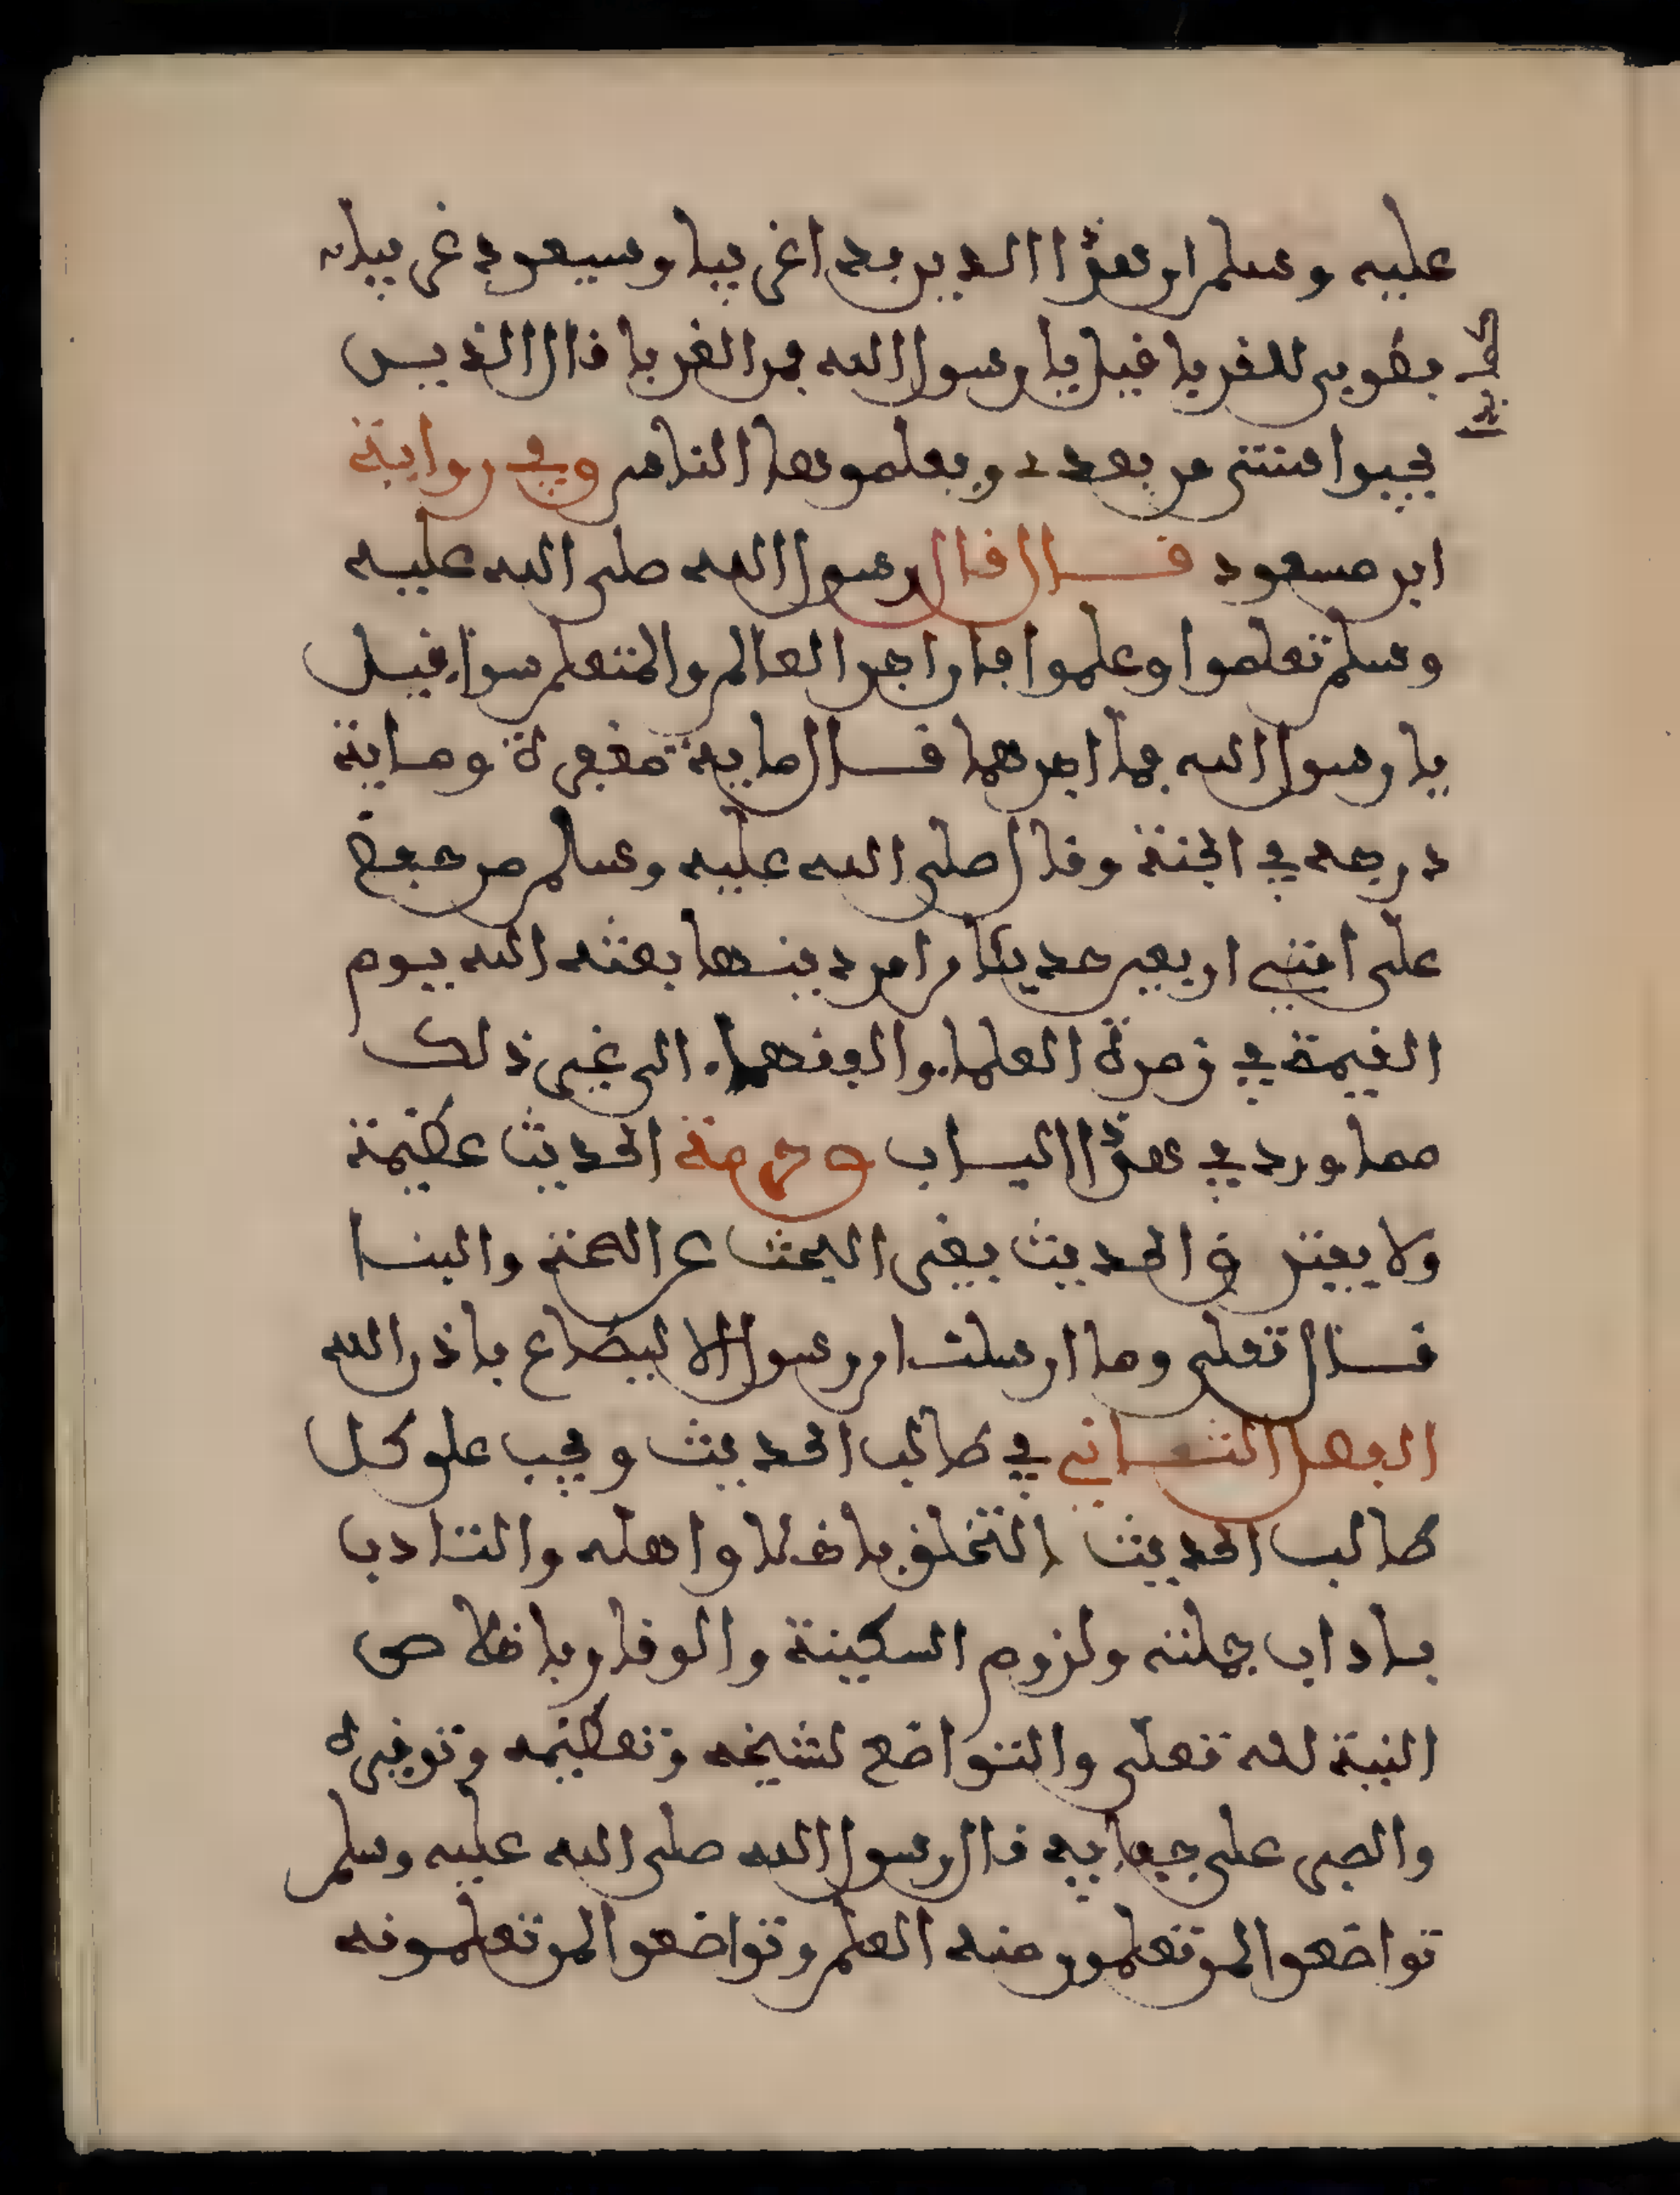 عليه وسلم ان هذا الدين بدا غريبا وسيعود غريبا
كما بدا
فطوبى للغربا فيل يا رسول الله من الغربا قال الذين
يحيوا سنتي من بعدي ويعلمونها الناس وفي رواية
ابن مسعود قال قال رسول الله صلى الله عليه
وسلم تعلموا وعلموا فان اجر العالم والمتعلم سواء قيل
يا رسول الله فما اجرهما قال ماية مغفرة وماية
درجه في الجنة وقال صلى الله عليه وسلم من حفظ
على امتي اربعين حديثا من امر دينها بعثه الله يوم
القيمة في زمرة العلماء والفقهاء الى غير ذلك
مما ورد في هذا الباب وحرمة الحديث عظيمة
ولا الحديث البحث عن الصحة والبنا
قال تعلى وما ارسلنا من رسول الا ليطاع باذن الله
الفصل الثاني في طالب الحديث ويجب على كل
طالب الحديث التخلق باخلاو اهله والتادب
باداب حملته ولزوم السكينة والوقار وباخلاص
النية لله تعلى والتواضع لشيخه وتعظيمه وتوفيره
والصبر على جفايه قال رسول الله صلى الله عليه وسلم
تواضعوا لمن تعلمون منه العلم وتواضعوا لمن تعلمونه